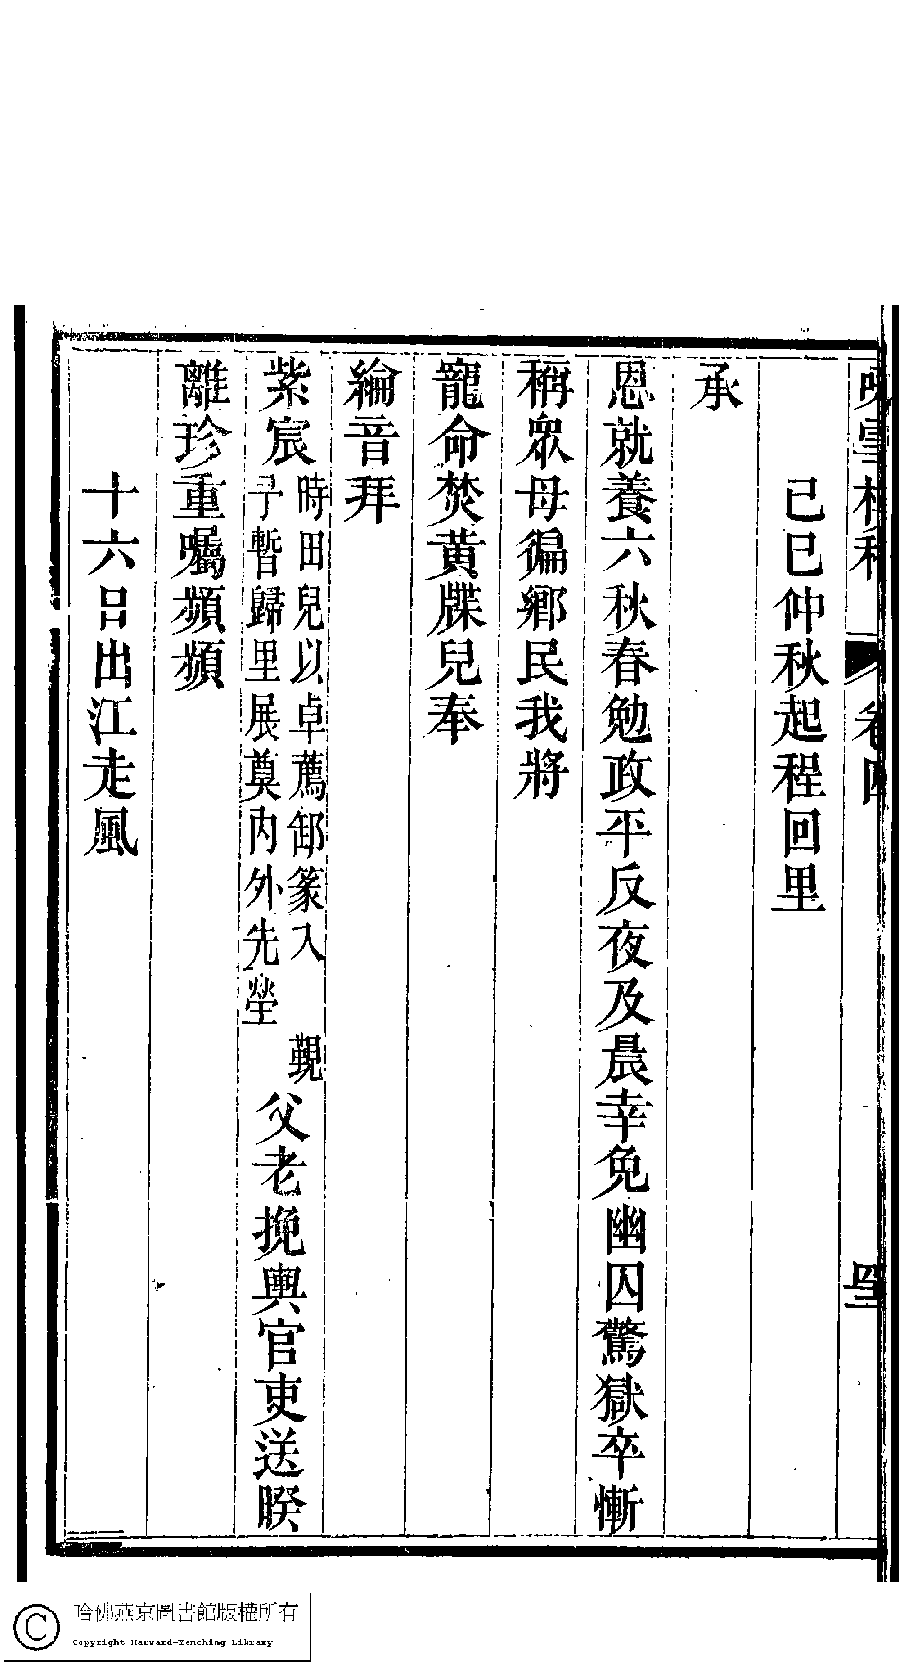 咏雪樓稿 卷四
己巳仲秋起程回里
承
恩就養六秋春勉政平反夜及晨幸免幽囚驚獄卒慚
稱眾母徧鄉民我將
寵命焚黃牒兒奉
綸音拜
紫宸
時田兒以卓薦卸篆入 覲
予暫歸里展奠內外先塋
父老挽輿官吏送暌
離珍重囑頻頻
十六日出江走風
哈佛燕京圖書館版權所有
Copyright Harvard-Yenching Library